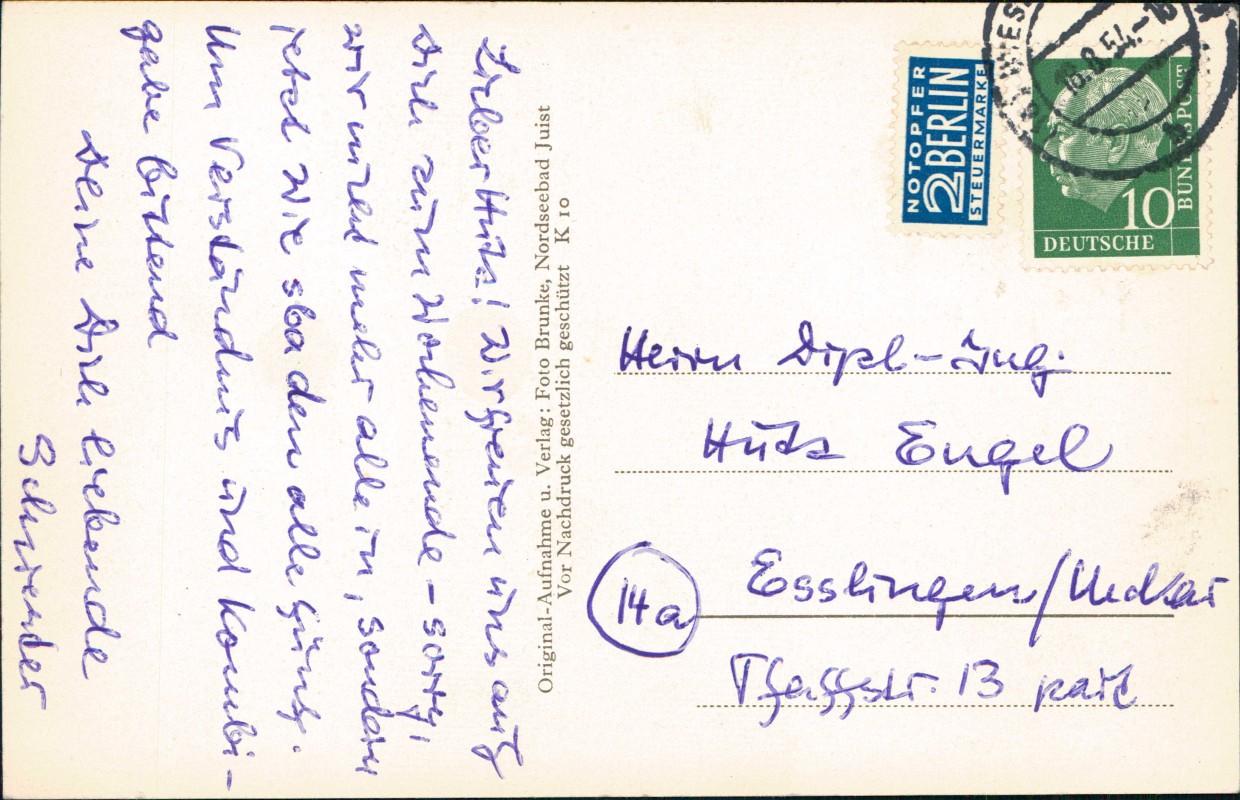 Lieber Hutz! Wir freuen uns auf
Dich zum Wochenende – sorry,
wir nicht mehr allein, sondern
jetzt wie sba dem alle fünf.
Um Verständnis und Kombi-
gabe bittend
Deine Dich liebende
Schwester
Original-Aufnahme u. Verlag: Foto Brunke, Nordseebad Juist
Vor Nachdruck gesetzlich geschützt K 10
NOTOPFER
2 BERLIN
STEUERMARKE
16.8.54.-
10
DEUTSCHE
BUNDESPOST
Herrn Dipl-Ing.
Hutz Engel
14a
Esslingen/Neckar
Pfaffstr. 13 part